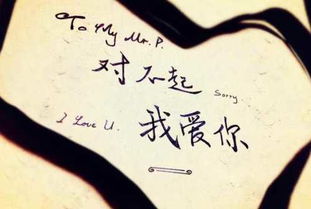 To My Mr. P.
对不起
Sorry.
I Love U.
我爱你